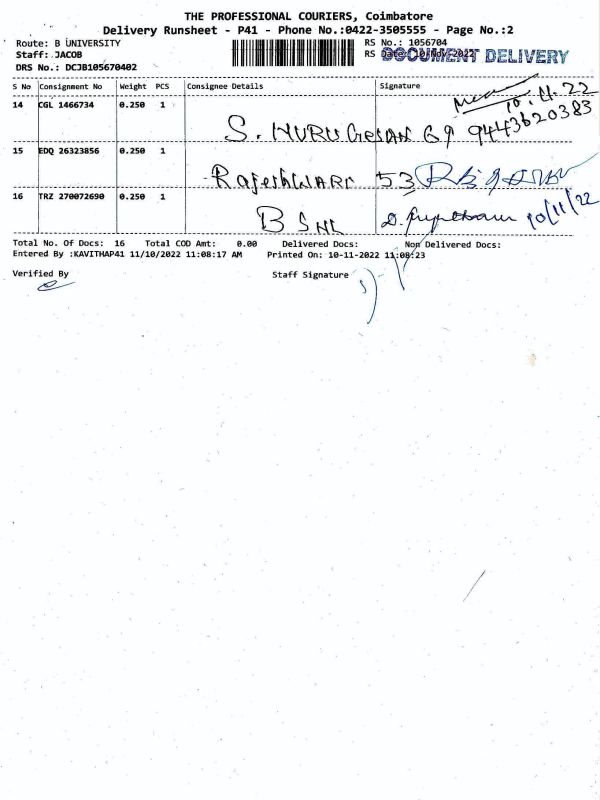 THE PROFESSIONAL COURIERS, Coimbatore
Delivery Runsheet - P41 - Phone No.:0422-3505555 - Page No.:2
Route: B UNIVERSITY
RS No.: 1056704
Staff: JACOB
RS Date: 10-Nov-2022
DOCUMENT DELIVERY
DRS No.: DCJB105670402
S No Consignment No Weight PCS Consignee Details Signature
10.11.22
14 CGL 1466734 0.250 1
S. MURUGESAN 69 9443620383
15 EDQ 26323856 0.250 1
RAJESHWARI 53
16 TRZ 270072690 0.250 1
BSNL 10/11/22
Total No. Of Docs: 16 Total COD Amt: 0.00 Delivered Docs: Non Delivered Docs:
Entered By :KAVITHAP41 11/10/2022 11:08:17 AM Printed On: 10-11-2022 11:08:23
Verified By Staff Signature